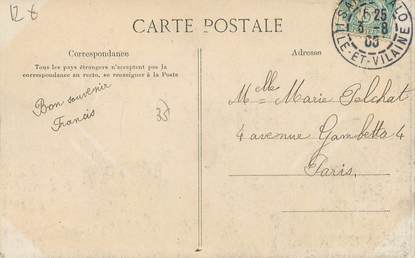 12 €
CARTE POSTALE
Correspondance
Tous les pays étrangers n'acceptent pas la
correspondance au recto, se renseigner à la Poste
Bon souvenir
Francis
35
Adresse
Mlle Marie Pelchat
4 avenue Gambetta 4
Paris.
5 25
8-8
ILLE-ET-VILAINE